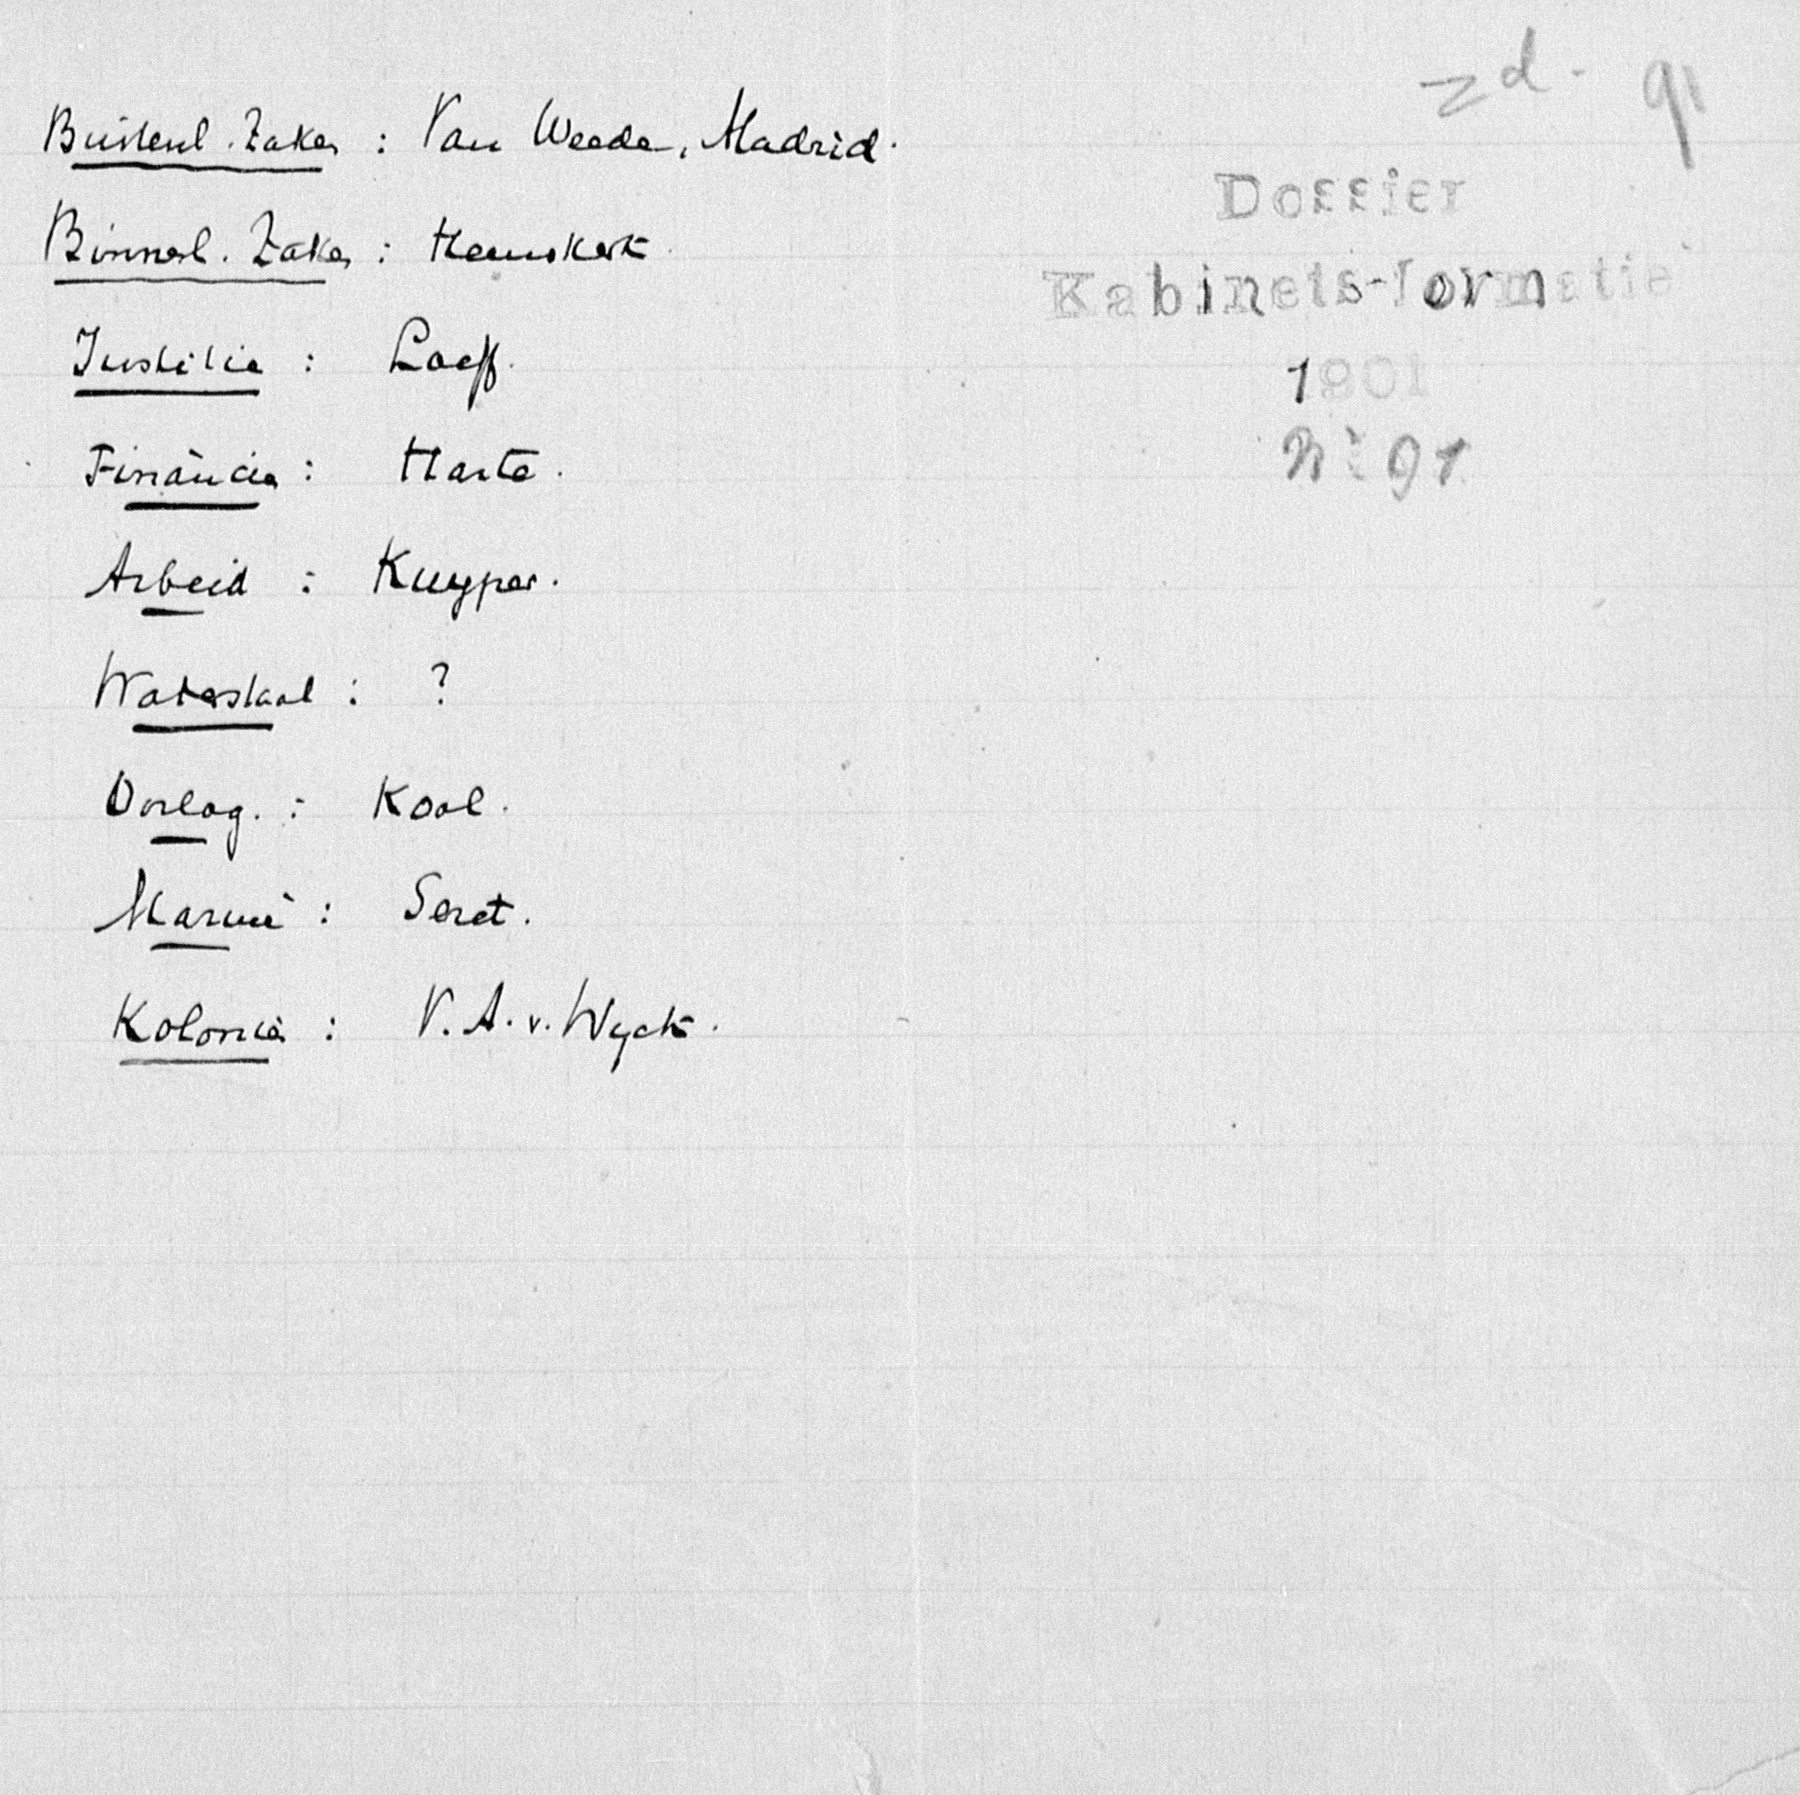 Buitenl. Zaken : Van Weede, Madrid.
Binnenl. Zaken : Heemskerk
Justitie : Loeff.
Financien : Harte.
Arbeid : Kuyper.
Waterstaat : ?
Oorlog. : Kool.
Marine : Seret.
Koloniën : V. A. v. Wyck.
zd. 91
Dossier
Kabinets-formatie
1901
No 91